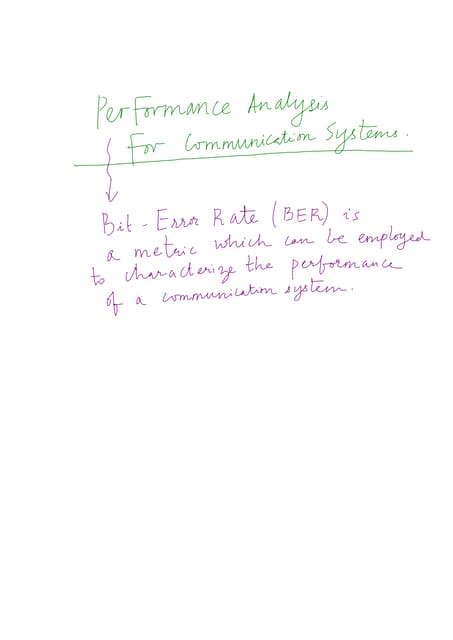 Performance Analysis
For Communication Systems.
Bit - Error Rate (BER) is
a metric which can be employed
to characterize the performance
of a communication system.